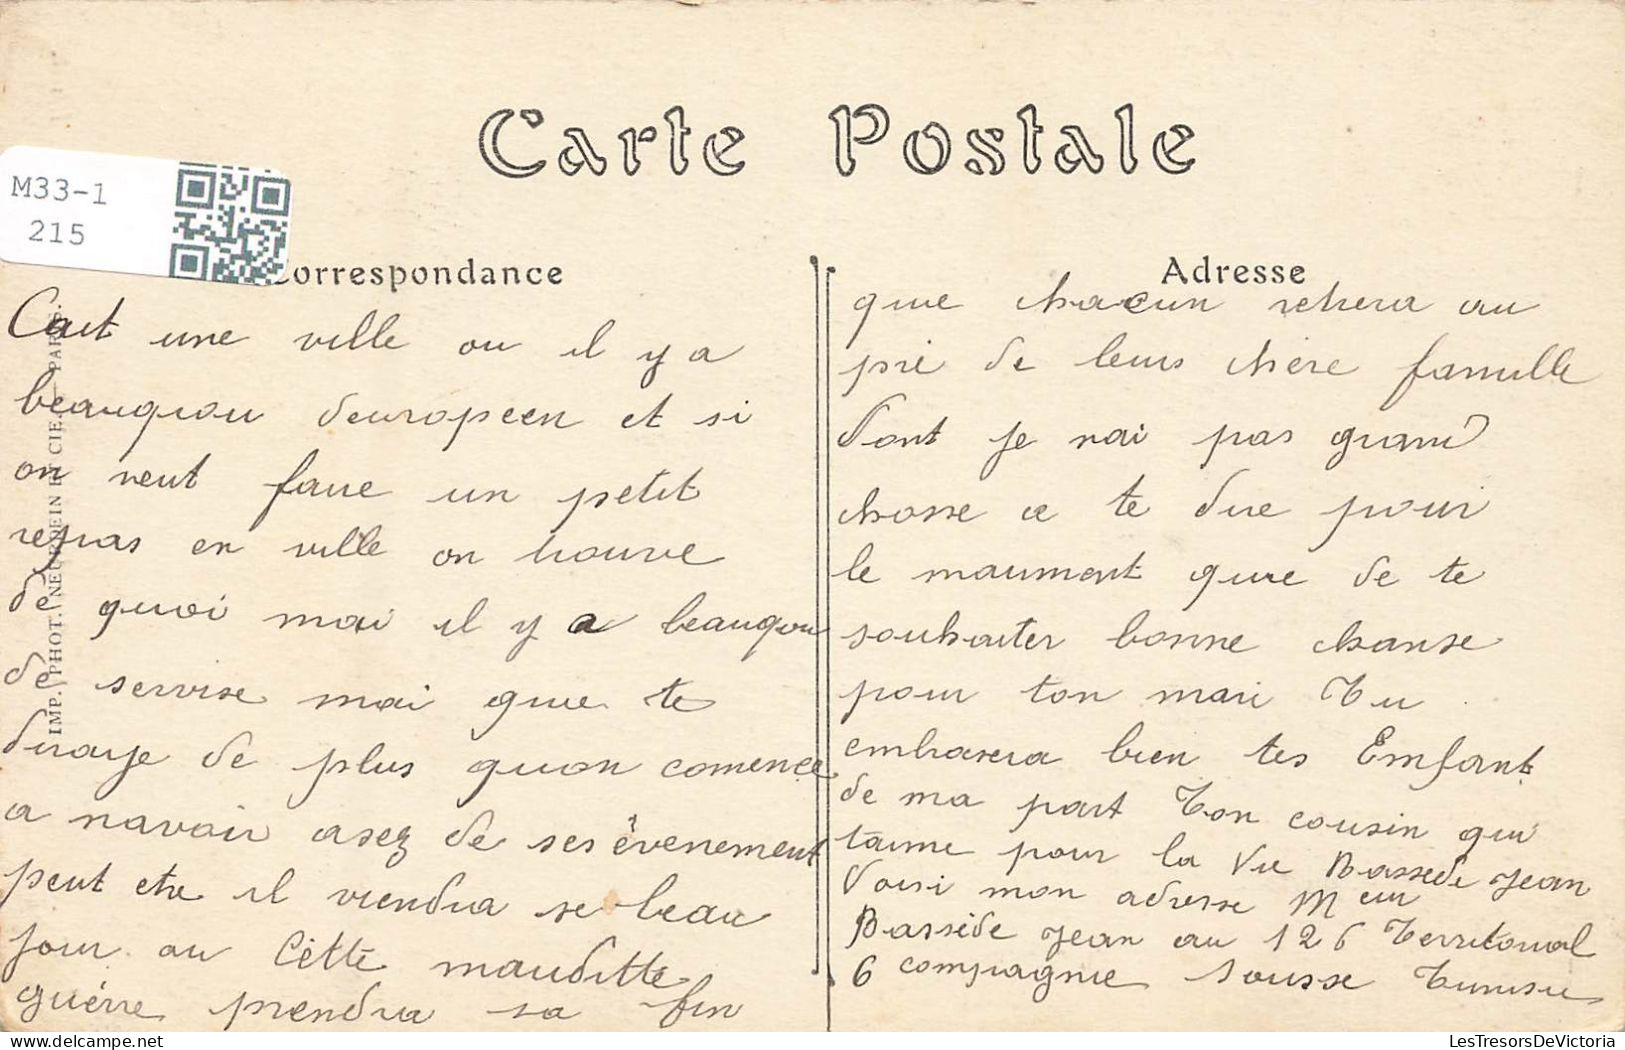 Carte Postale
M33-1
215
Correspondance
Cait une ville ou il y a
beauquou deuropeen et si
on veut faire un petit
repas en ville on trouve
de quoi mai il y a beauqou
de servise mai que te
diraije de plus quon comence
a navoir asez de ses èvenement
peut etre il viendra se beau
jour ou Cètte mauditte
guérre prendra sa fin
IMP. PHOT. NEURDEIN ET CIE. - PARIS.
Adresse
que chacun retrera au
pré de leurs chère famille
dont je nai pas grand
chosse a te dire pour
le maument que de te
souhaiter bonne chanse
pour ton mari Tu
embrasera bien tes Emfant
de ma part Ton cousin qui
taime pour la Vie Bassède Jean
Voisi mon adresse Meur
Bassède Jean au 126 Territorial
6 compagnie Sousse Tunisie
LesTresorsDeVictoria
delcampe.net